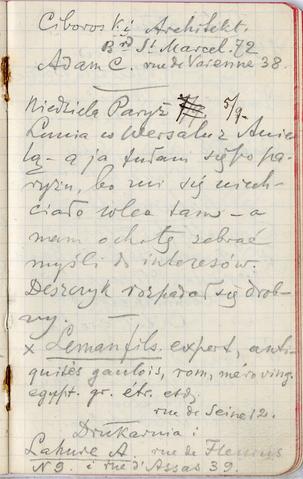 Ciboroski Architekt.
Brd St. Marcel. 72
Adam C. rue de Varenne 38.
Niedziela Paryż 5/9.
Lunia w Wersalu z Anie
lą – a ja tułam się po pa-
ryżu, bo mi się niech-
ciało wlec tam – a
mam ochotę zebrać
myśli do interesów.
Deszczyk rozpadał się drob-
ny. –
x Leman fils. expert, anti-
quités gaulois, rom, méroving.
egypt. gr. étr. etc,
rue de Seine 12.
Drukarnia:
Lahure A. rue de Fleurus
N 9. i rue d'Assas 39.